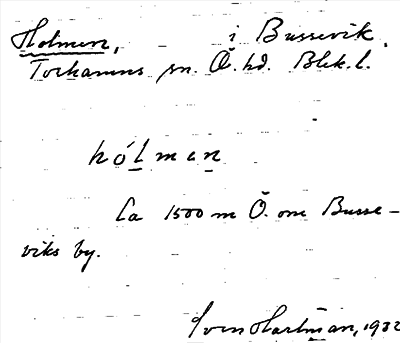 Holmen, i Bussevik,
Torhamns sn. Ö. hd. Blek.l.
hólman
Ca 1500 m Ö. om Busse-
viks by.
Sven Hartman, 1932